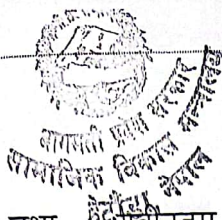 बागमती प्रदेश सरकार
सामाजिक विकास मन्त्रालय
हेटौंडा
नेपाल